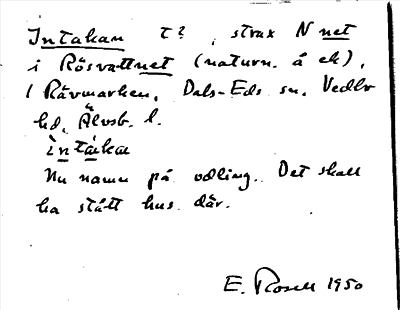 Intakan t? , strax N net
i Rösvattnet (naturn. å ek),
i Rävmarken, Dals-Eds sn. Vedbo
hd, Älvsb. l.
ìntáka
Nu namn på odling. Det skall
ha stått hus där.
E. Rosell 1950